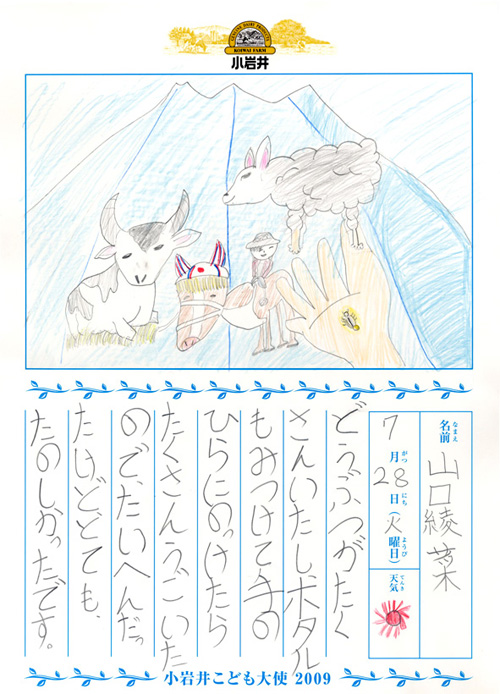 GENUINE DAIRY PRODUCTS
KOIWAI FARM
小岩井
名前 なまえ 山口綾菜
7月がつ28日にち(火曜日ようび) 天気てんき
どうぶつがたく
さんいたしホタル
もみつけて手の
ひらにのっけたら
たくさんうごいた
ので、たいへんだっ
たけどとても、
たのしかったです。
小岩井こども大使 2009